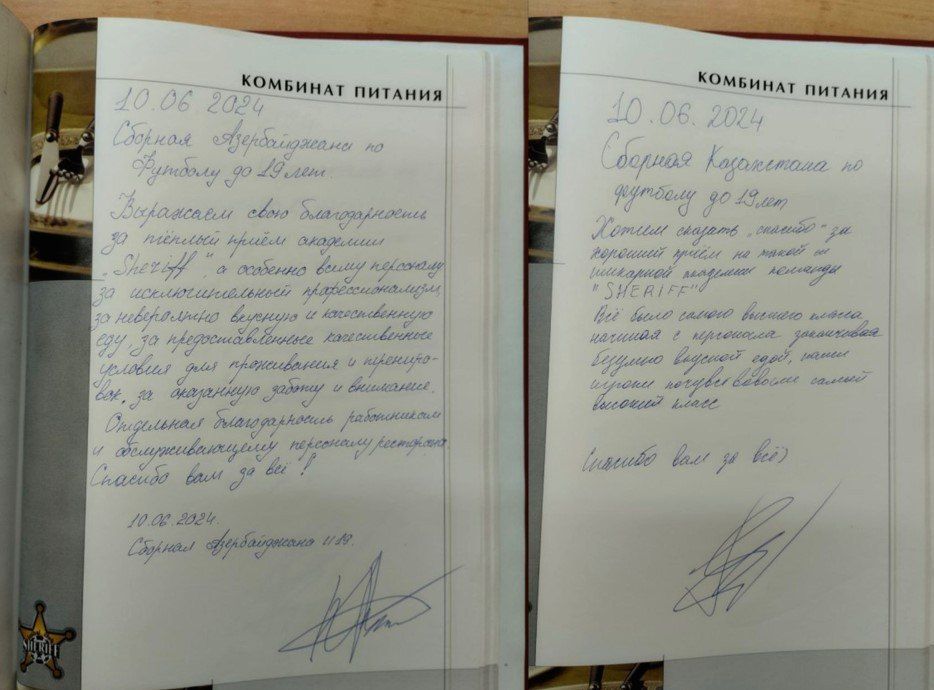 КОМБИНАТ ПИТАНИЯ
10.06.2024
Сборная Азербайджана по
Футболу до 19 лет
Выражаем свою благодарность
за тёплый приём академии
„Sheriff", а особенно всему персоналу
за исключительный профессионализм,
за невероятно вкусную и качественную
еду, за предоставленные качественные
условия для проживания и трениро-
вок, за оказанную заботу и внимание.
Отдельная благодарность работникам
и обслуживающему персоналу ресторана.
Спасибо вам за всё!
10.06.2024.
Сборная Азербайджана U19.
SHERIFF
КОМБИНАТ ПИТАНИЯ
10.06.2024
Сборная Казахстана по
футболу до 19 лет
Хотим сказать „спасибо" за
хороший приём на такой
шикарной академии команды
"SHERIFF"
Всё было самого высшего класса
начиная с персонала заканчивая
безумно вкусной едой, наши
игроки почувствовали самый
высокий класс
Спасибо вам за всё)